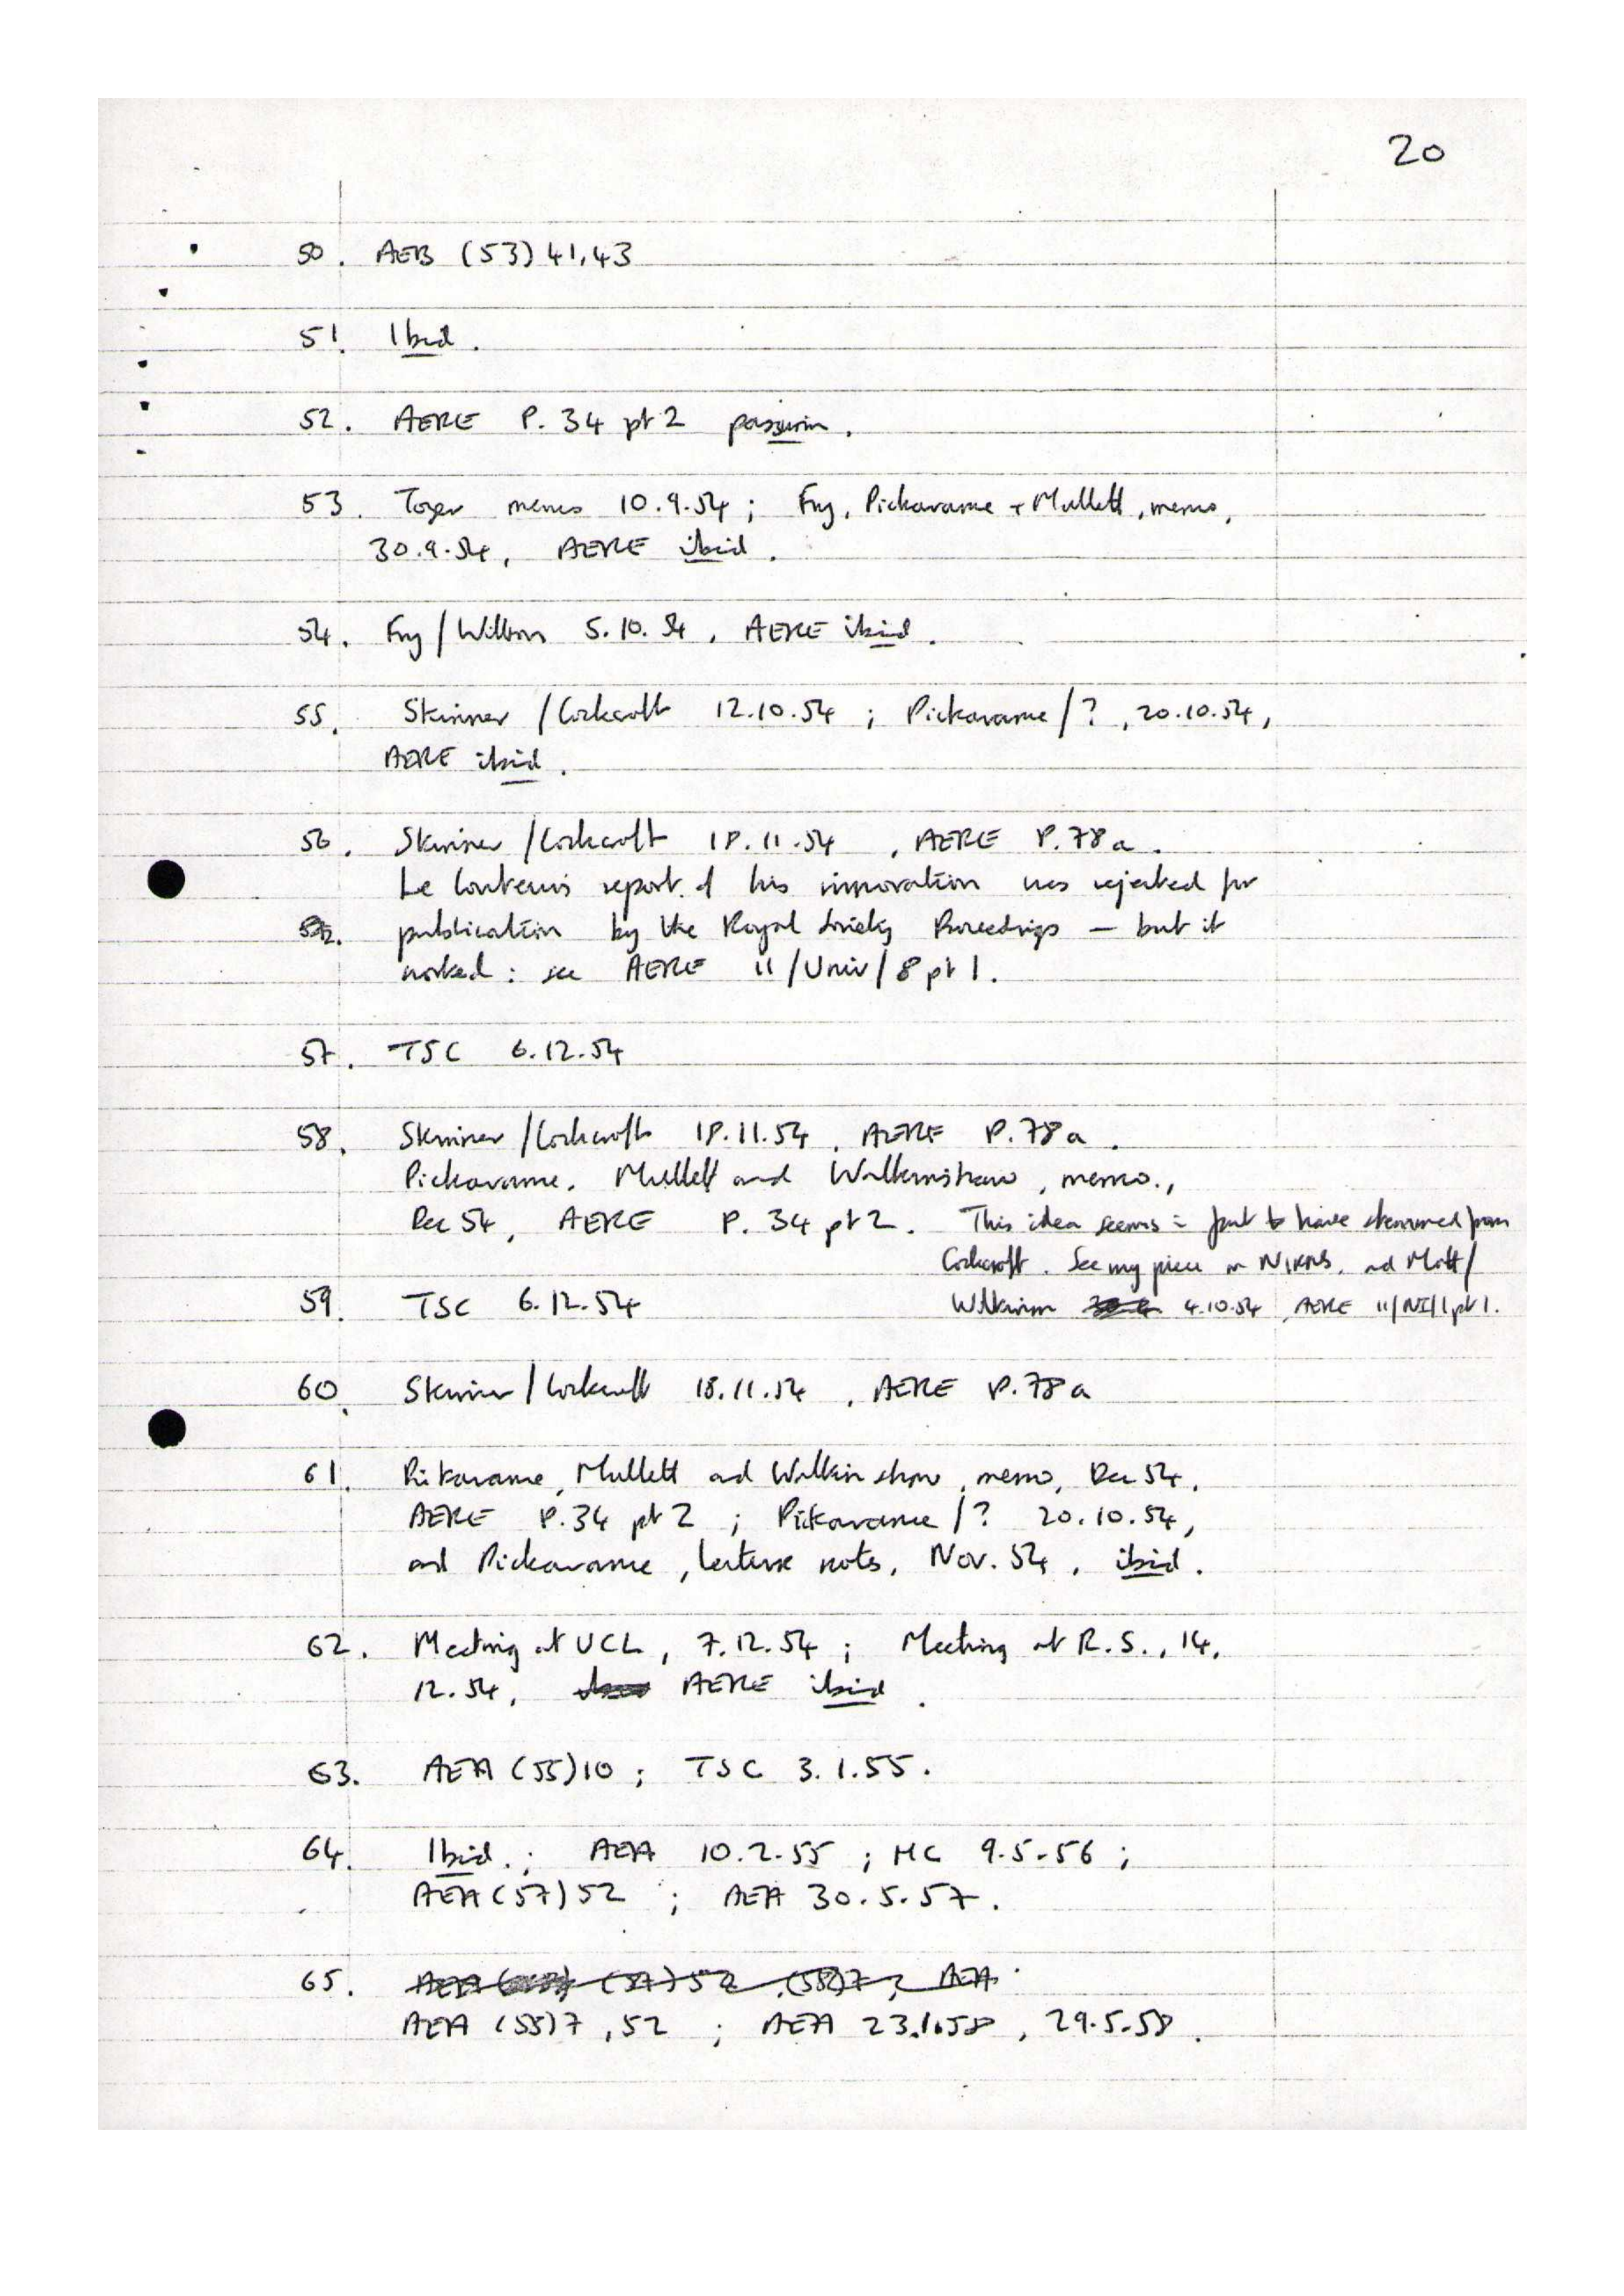 20
50. AEB (53) 41, 43
51. Ibid.
52. AERE P. 34 pt 2 passim.
53. Tozer memo 10.9.54; Fry, Pickavance + Mullett, memo,
30.9.54, AERE ibid.
54. Fry / Willson 5.10.54, AERE ibid.
55. Skinner / Cockcroft 12.10.54; Pickavance / ?, 20.10.54,
AERE ibid.
56. Skinner / Cockcroft 18.11.54, AERE P.78a.
Le Couteur's report of his innovation was rejected for
publication by the Royal Society Proceedings — but it
worked: see AERE 11/Univ/8 pt 1.
57. TSC 6.12.54
58. Skinner / Cockcroft 18.11.54, AERE P.78a.
Pickavance, Mullett and Walkinshaw, memo.,
Dec 54, AERE P. 34 pt 2. This idea seems in part to have stemmed from
Cockcroft. See my piece on NIRNS, and Mott/
59. TSC 6.12.54 4.10.54, AERE 11/NI/1 pt 1.
60. Skinner / Cockcroft 18.11.54, AERE P.78a
61. Pickavance, Mullett and Walkinshaw, memo, Dec 54,
AERE P.34 pt 2; Pickavance / ? 20.10.54,
and Pickavance, lecture notes, Nov. 54, ibid.
62. Meeting at UCL, 7.12.54; Meeting at R.S., 14.
12.54, AERE ibid.
63. AEA (55)10; TSC 3.1.55.
64. Ibid.; AEA 10.2.55; MC 9.5.56;
AEA (57) 52; AEA 30.5.57.
65. (57) 52, (58)7, AEA
AEA (58)7, 52; AEA 23.1.58, 29.5.58.